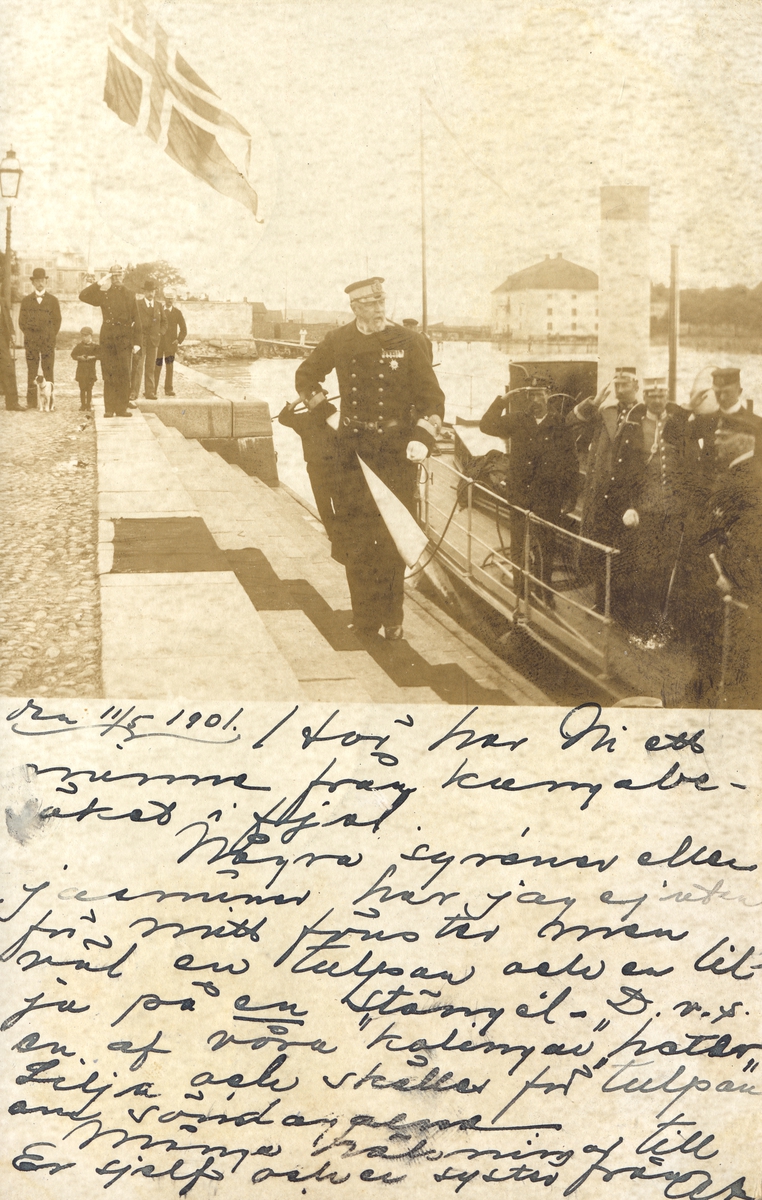 den 11/5 1901. Här har Ni ett
minne från kungabe-
söket i fjol.
Några syréner eller
jasminer har jag ej utan
för mitt fönster men
väl en tulpan och en lil-
ja på en stängel. D.v.s.
en af våra "kolingar" heter
Lilja och skäller för tulpan
om söndagarna
Många hälsningar till
Er sjelf och er syster från